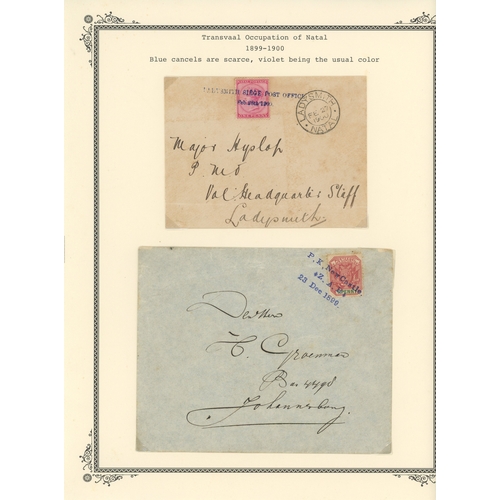 Transvaal Occupation of Natal
1899-1900
Blue cancels are scarce, violet being the usual color
LADYSMITH SIEGE POST OFFICE
LADYSMITH
NATAL
Major Hyslop
P. M. O
Vol: Headquarters Staff
Ladysmith
P. K. New Castle
Z. A. R.
23 Dec 1899.
Den Heer
Box 4498
Johannesburg